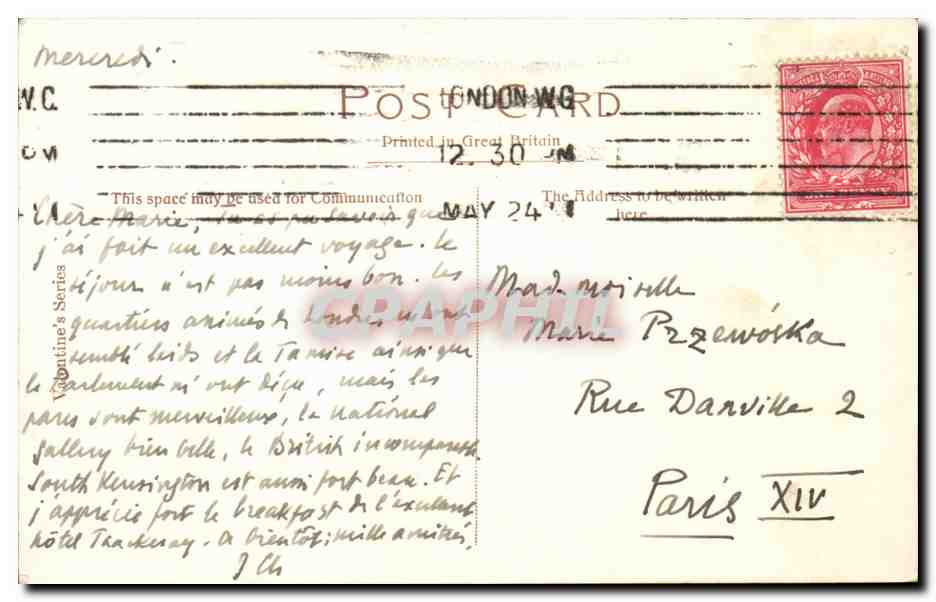 Mercredi.
W.C. LONDON.W.C.
POST CARD
Printed in Great Britain
12. 30 PM
This space may be used for Communication
The Address to be written
here
MAY 24
Valentine's Series
Chère Marie, tu as pu savoir que
j'ai fait un excellent voyage. Le
séjour n'est pas moins bon. Les
quartiers animés de Londres m'ont
semblé laids et la Tamise ainsi que
le Parlement m'ont déçu, mais les
parcs sont merveilleux, la National
Gallery bien belle, le British incomparable.
South Kensington est aussi fort beau. Et
j'apprécie fort le breakfast de l'excellent
hôtel Thackeray. A bientôt; mille amitiés,
J Ch
Mademoiselle
Marie Przewóska
Rue Danville 2
Paris XIV
CPAPHIL